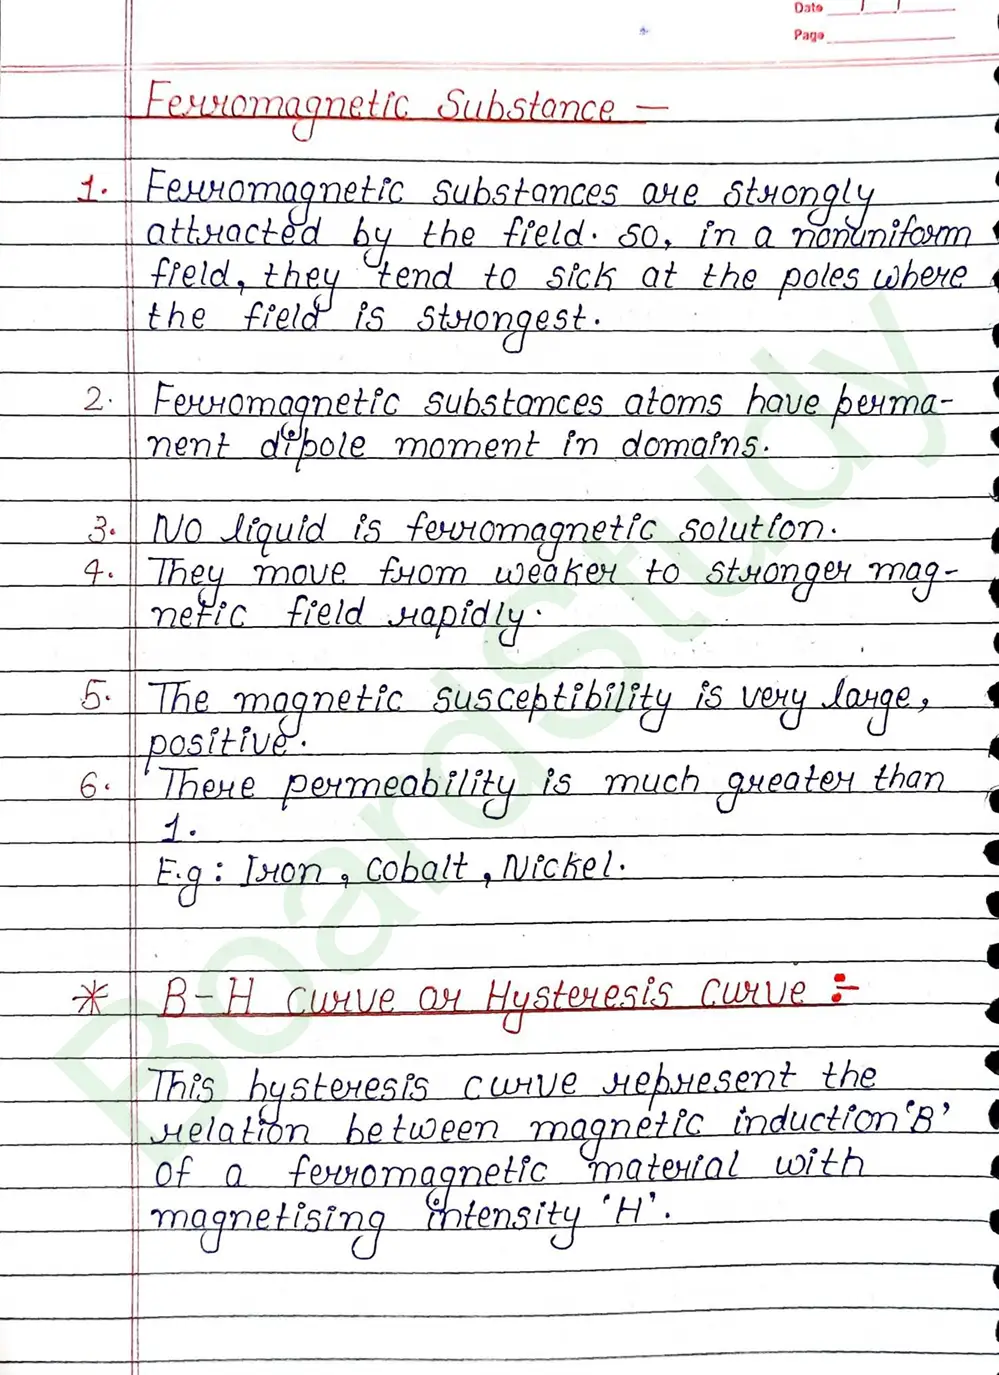 Date
Page
Ferromagnetic Substance —
1. Ferromagnetic substances are strongly
attracted by the field. so, in a nonuniform
field, they tend to sick at the poles where
the field is strongest.
2. Ferromagnetic substances atoms have perma-
nent dipole moment in domains.
3. No liquid is ferromagnetic solution.
4. They move from weaker to stronger mag-
netic field rapidly.
5. The magnetic susceptibility is very large,
positive.
6. There permeability is much greater than
1.
E.g : Iron, Cobalt, Nickel.
* B-H curve or Hysteresis curve :-
This hysteresis curve represent the
relation between magnetic induction 'B'
of a ferromagnetic material with
magnetising intensity 'H'.
BoardStudy